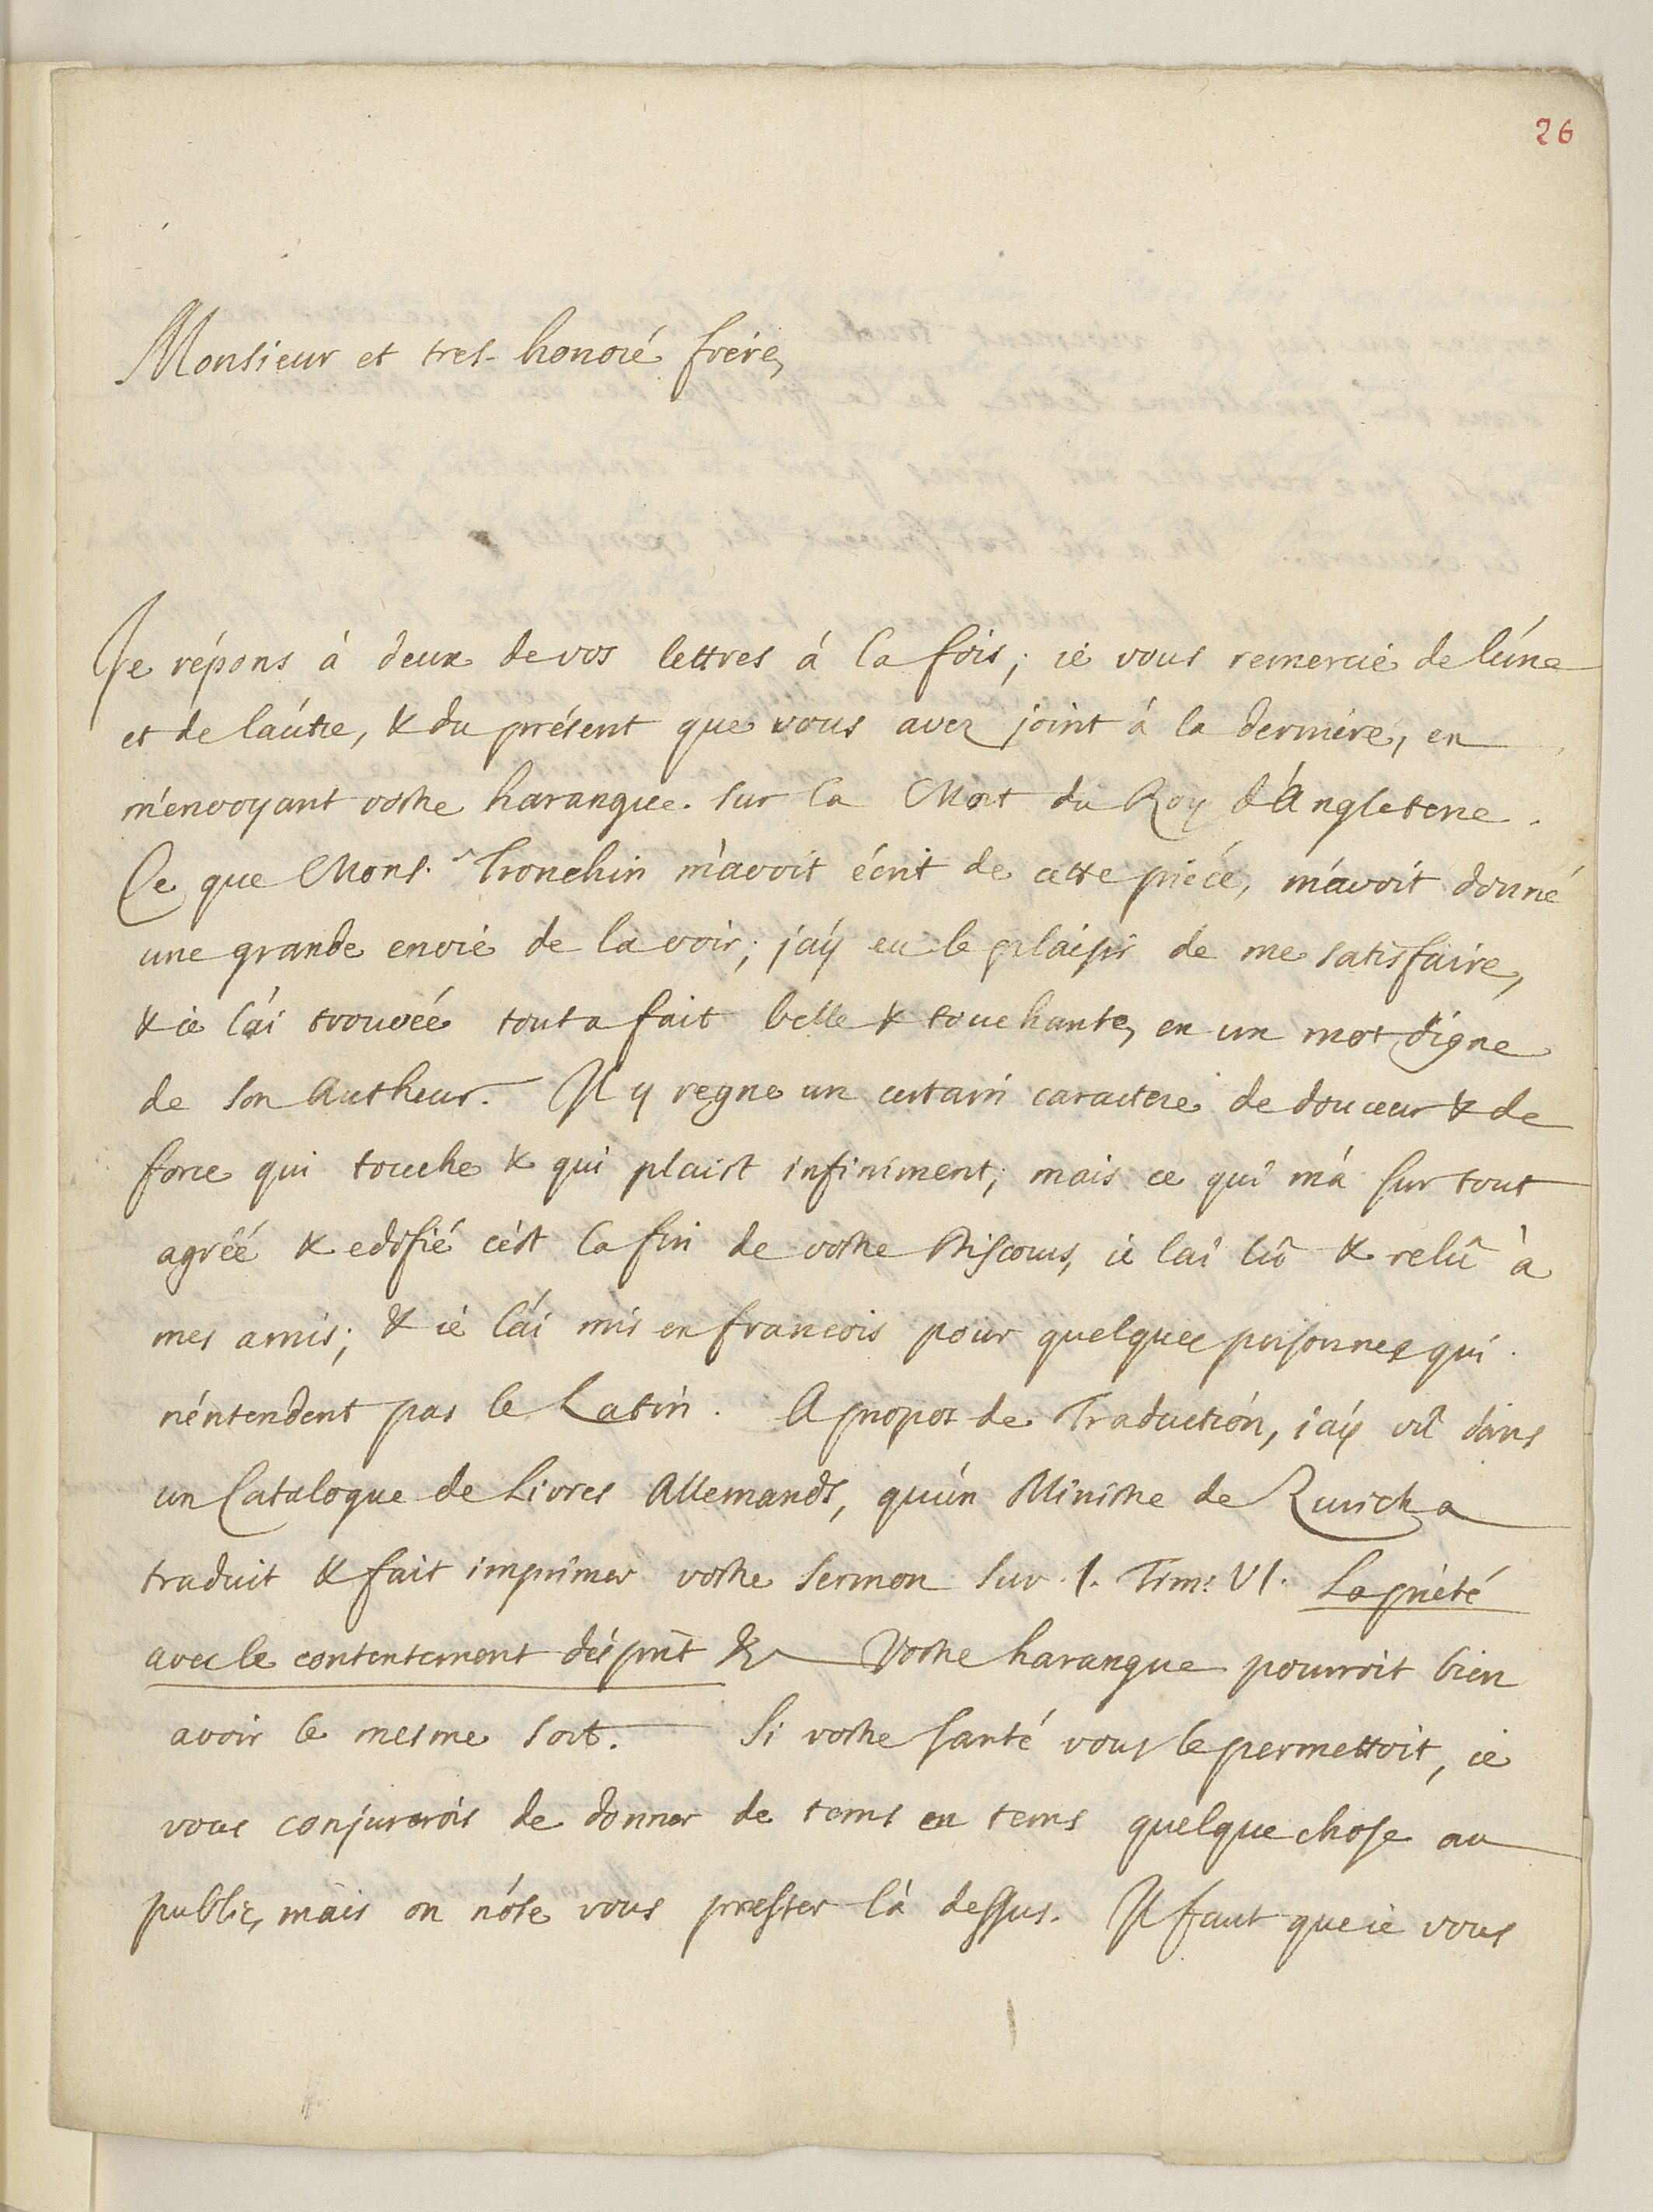 26
Monsieur et tres-honoré frére,
Je répons à deux de vos lettres à la fois; ie vous remercie de l'úne
et de l'aútre, & du présent que vous avez joint à la derniére, en
m'envoyant vostre harangue sur la Mort du Roy d'Angleterre.
Ce que Mons.r Tronchin m'avoit écrit de cette piéce, m'avoit donné
une grande envie de la voir; j'ay eu le plaisir de me satisfaire,
& ie l'ai trouvée tout a fait belle & touchante, en un mot digne
de son Autheur. Il y regne un certain caractere de douceur & de
force qui touche & qui plaist infiniment; mais ce qui m'a sur tout
agréé & edifié c'est la fin de vostre Discours, ie l'ai lû & relû à
mes amis; & ie l'ai mis en francois pour quelques personnes qui
n'entendent pas le Latin. A propos de Traduction, i'ay vû dans
un Catalogue de Livres Allemands, qu'un Ministre de Zurich a
traduit & fait imprimer vostre sermon sur 1. Tim: VI. La piété
avec le contentement d'esprit &c Vostre harangue pourroit bien
avoir le mesme sort. Si vostre santé vous le permettoit, ie
vous conjurerois de donner de tems en tems quelque chose au
public, mais on n'ose vous presser là dessus. Il faut que ie vous